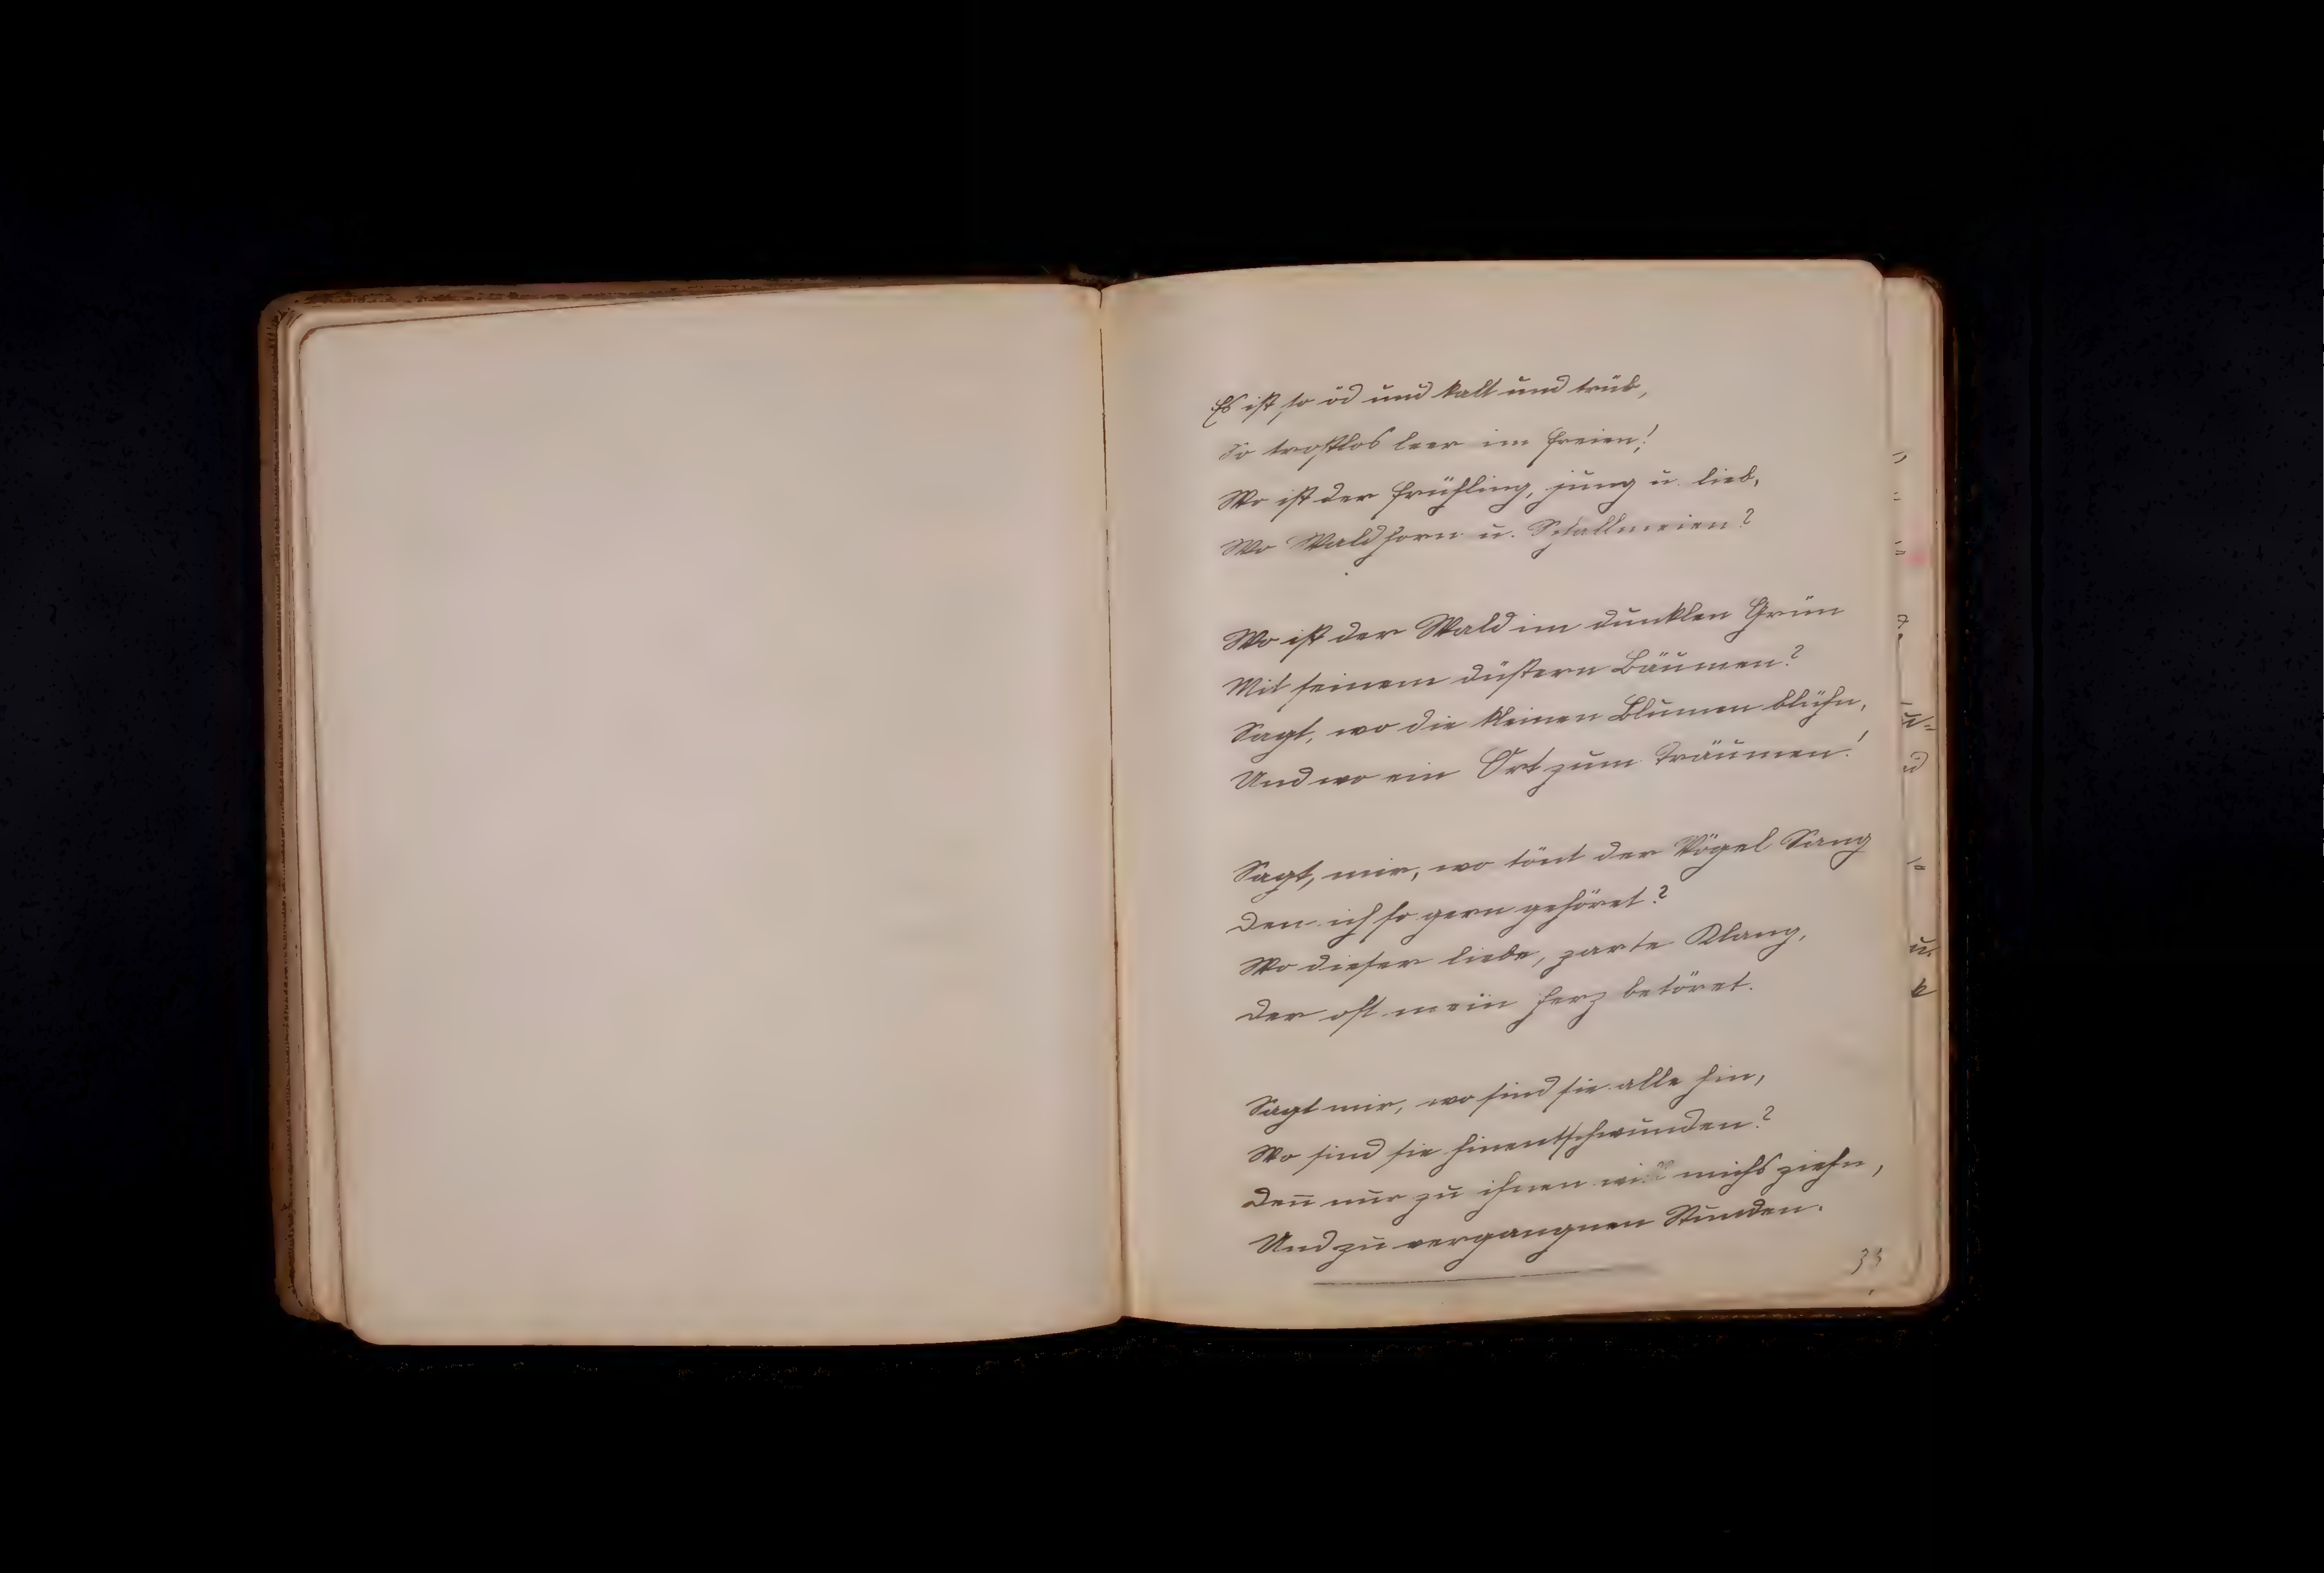 Es ist so öd und kalt und trüb,
So trostlos leer im Freien!
Wo ist der Frühling, jung u. lieb,
Wo Waldhorn u. Schallmeien?
Wo ist der Wald im dunklen Grün
Mit seinem düstern Bäumen?
Sagt, wo die kleinen Blumen blühn,
Und wo ein Ort zum Träumen!
Sagt, mir, wo tönt der Vögel Sang
Den ich so gern gehöret?
Wo dieser liebe, zarte Klang,
Der oft mein Herz betöret.
Sagt mir, wo sind sie alle hin,
Wo sind sie hinentschwunden?
Den̅ nur zu ihnen will michs ziehn,
Und zu vergangnen Stunden.
33